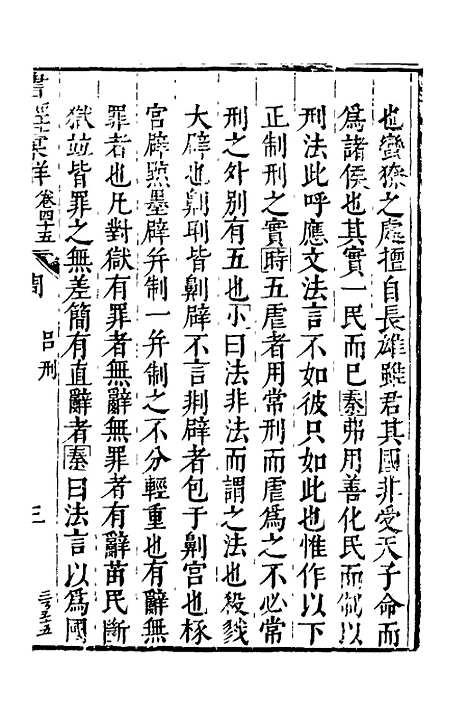 也蠻獠之處擅自長雄雖君其國非受天子命而
爲諸侯也其實一民而已秦弗用善化民而制以
刑法此呼應文法言不如彼只如此也惟作以下
正制刑之實時五虐者用常刑而虐爲之不必常
刑之外別有五也小曰法非法而謂之法也殺戮
大辟也劓刵皆劓辟不言剕辟者包于劓宮也椓
宮辟黥墨辟并制一并制之不分輕重也有辭無
罪者也凡對獄有罪者無辭無罪者有辭苗民斷
獄並皆罪之無差簡有直辭者秦曰法言以爲國
卷四十五
周
呂刑
三